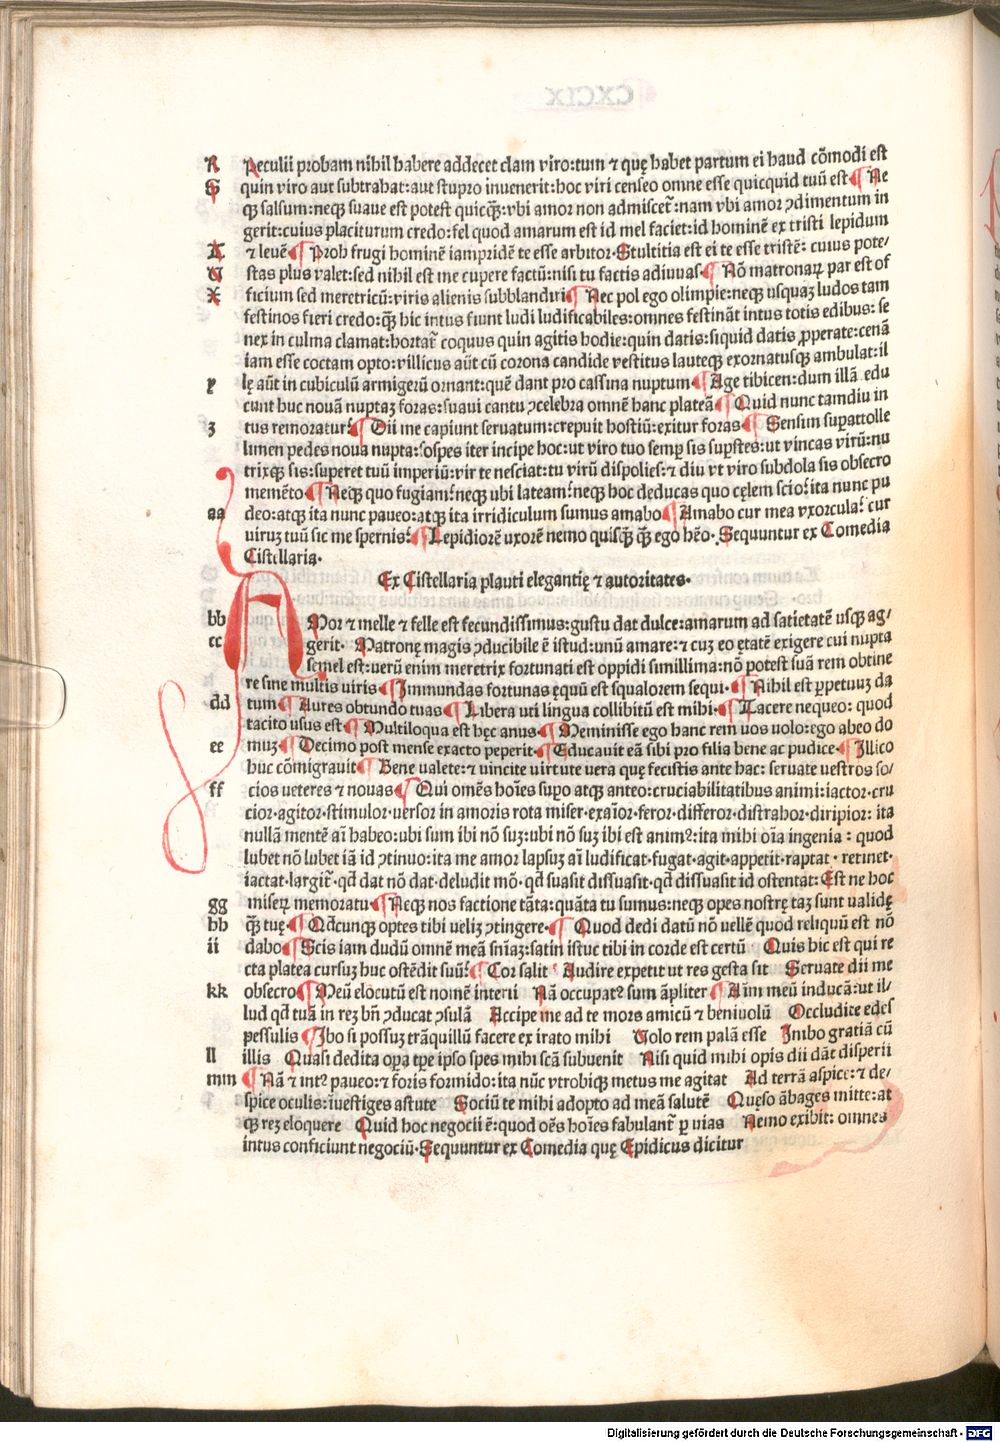 CXCIX
R Peculii probam nihil habere addecet clam viro:tum ⁊ quę habet partum ei haud cōmodi est
S quin viro aut subtrahat:aut stupro invenerit:hoc viri censeo omne esse quicquid tuū est ¶ Ne
qꝫ salsum:neqꝫ suaue est potest quicqꝫ̄:vbi amor non admiscet᷑:nam vbi amor ↄdimentum in
gerit:cuius placiturum credo:fel quod amarum est id mel faciet:id hominē ex tristi lepidum
A ⁊ levē ¶ Prob frugi hominē iampridē te esse arbitor·Stultitia est ei te esse tristē: cuius pote/
V stas plus valet:sed nihil est me cupere factū:nisi tu factis adiuuas ¶ Nō matronaꝝ par est of
X ficium sed meretricū:viris alienis subblandiri ¶ Nec pol ego olimpie:neqꝫ usquaꝫ ludos tam
festinos fieri credo:qꝫ̄ hic intus fiunt ludi ludificabiles:omnes festināt intus totis edibus: se
nex in culina clamat:hortat᷑ coquus quin agitis hodie:quin datis:siquid datis ꝓperate:cenā
iam esse coctam opto:villicus aūt cū corona candide vestitus lauteqꝫ exornatusqꝫ ambulat:il
y lę aūt in cubiculū armigerū ornant:quē dant pro cassina nuptum ¶ Age tibicen:dum illā edu
cunt huc nouā nuptaꝫ foras:suaui cantu ↄcelebra omnē hanc plateā ¶ Quid nunc tamdiu in
z tus remoratur? ¶ Dii me capiunt seruatum:crepuit hostiū:exitur foras ¶ Sensim suꝑattolle
limen pedes noua nupta:sospes iter incipe hoc:ut viro tuo semꝑ sis suꝑstes:ut vincas virū:nu
trixqꝫ sis:superet tuū imperiū:vir te nesciat:tu virū dispolies:⁊ diu vt viro subdola sis obsecro
memēto ¶ Neqꝫ quo fugiam?neqꝫ ubi lateam?neqꝫ hoc deducas quo cęlem scio?ita nunc pu
aa deo:atqꝫ ita nunc paueo:atqꝫ ita irridiculum sumus amabo ¶ Amabo cur mea vxorcula? cur
uirux tuū sic me spernis? ¶ Lepidiorē uxorē nemo quisqꝫ̄ qꝫ̄ ego hēo·Sequuntur ex Comedia
Cistellaria·
Ex Cistellaria plauti elegantię ⁊ autoritates·
bb AMor ⁊ melle ⁊ felle est fecundissimus:gustu dat dulce:amarum ad satietatē usqꝫ ag/
cc gerit· Patronę magis ↄducibile ē istud:unū amare:⁊ cuꝫ eo ętatē exigere cui nupta
semel est:uerū enim meretrix fortunati est oppidi simillima:nō potest suā rem obtine
re sine multis viris ¶ Immundas fortunas ęquū est squalorem sequi· ¶ Nihil est ꝑpetuuꝫ da
dd tum ¶ Aures obtundo tuas ¶ Libera uti lingua collibitū est mihi· ¶ Tacere nequeo: quod
tacito usus est ¶ Multiloqua est hęc anus ¶ Meminisse ego hanc rem uos uolo:ego abeo do
ee muꝫ ¶ Decimo post mense exacto peperit· ¶ Educauit eā sibi pro filia bene ac pudice· ¶ Illico
huc cōmigrauit ¶ Bene valete:⁊ uincite uirtute uera quę fecistis ante hac: seruate uestros so/
ff cios ueteres ⁊ nouas ¶ Qui omēs hoīes supo atqꝫ anteo:cruciabilitatibus animi:iactor·cru
cior·agitor·stimulor·versor in amoris rota miser·exaīor·feror·differor·distrahor·diripior: ita
nullā mentē aī habeo:ubi sum ibi nō suꝫ:ubi nō suꝫ ibi est animꝰ:ita mihi oīa ingenia : quod
lubet nō lubet iā id ↄtinuo:ita me amor lapsuꝫ aī ludificat·fugat·agit·appetit·raptat · retinet·
iactat·largit᷑·qd̄ dat nō dat·deludit mō·qd̄ suasit dissuasit·qd̄ dissuasit id ostentat: Est ne hoc
gg miseꝝ memoratu ¶ Neqꝫ nos factione tāta:quāta tu sumus:neqꝫ opes nostrę taꝫ sunt validę
hh qꝫ̄ tuę ¶ Qd̄cunqꝫ optes tibi ueliꝫ ↄtingere· ¶ Quod dedi datū nō uellē quod reliquū est nō
ii dabo ¶ Scis iam dudū omnē meā sn̄iaꝫ:satin istuc tibi in corde est certū Quis hic est qui re
cta platea cursuꝫ huc ostēdit suū? ¶ Cor salit Audire expetit ut res gesta sit Seruate dii me
kk obsecro ¶ Meū elocutū est nomē interii Nā occupatꝰ sum āpliter ¶ Aīm meū inducā:ut il/
lud qd̄ tuā in reꝫ bn̄ ↄducat ↄsulā Accipe me ad te mors amicū ⁊ beniuolū Occludite edes
pessulis ¶ Ibo si possuꝫ trāquillū facere ex irato mihi Volo rem palā esse Inibo gratiā cū
ll illis Quasi dedita oꝑa tꝑe ipso spes mihi scā subuenit Nisi quid mihi opis dii dāt disperii
mm ¶ Nā ⁊ intꝰ paueo:⁊ foris formido:ita nūc vtrobiqꝫ metus me agitat Ad terrā aspice:⁊ de/
spice oculis:īuestiges astute Sociū te mihi adopto ad meā salutē Quęso ābages mitte:at
qꝫ reꝫ eloquere Quid hoc negocii ē:quod oēs hoīes fabulant᷑ ꝑ uias Nemo exibit: omnes
intus conficiunt negociū·Sequuntur ex Comedia quę Epidicus dicitur
Digitalisierung gefördert durch die Deutsche Forschungsgemeinschaft - DFG